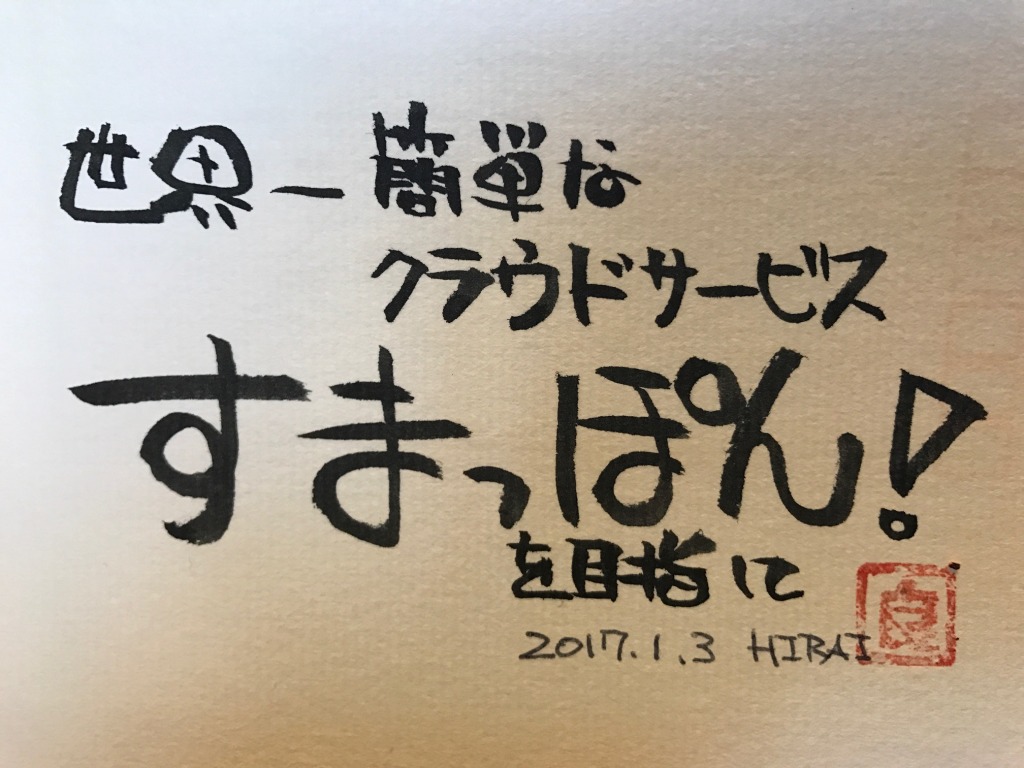 世界一簡単な
クラウドサービス
すまっぽん!
を目指して
2017.1.3 HIRAI
良